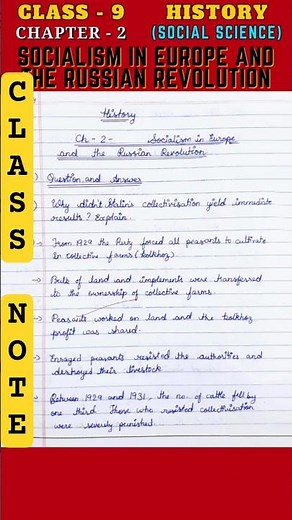 CLASS - 9 HISTORY
CHAPTER - 2 (SOCIAL SCIENCE)
SOCIALISM IN EUROPE AND
THE RUSSIAN REVOLUTION
CLASS
NOTE
History
Ch - 2 - Socialism in Europe
and the Russian Revolution
Question and Answer
Why didn't Stalin's collectivisation yield immediate
results? Explain.
→ From 1929 the Party forced all peasants to cultivate
in collective farms (kolkhoz)
→ Bulk of land and implements were transferred
to the ownership of collective farms.
→ Peasants worked on land and the kolkhoz
profit was shared.
→ Enraged peasants resisted the authorities and
destroyed their livestock.
→ Between 1929 and 1931, the no. of cattle fell by
one third. Those who resisted collectivisation
were severely punished.